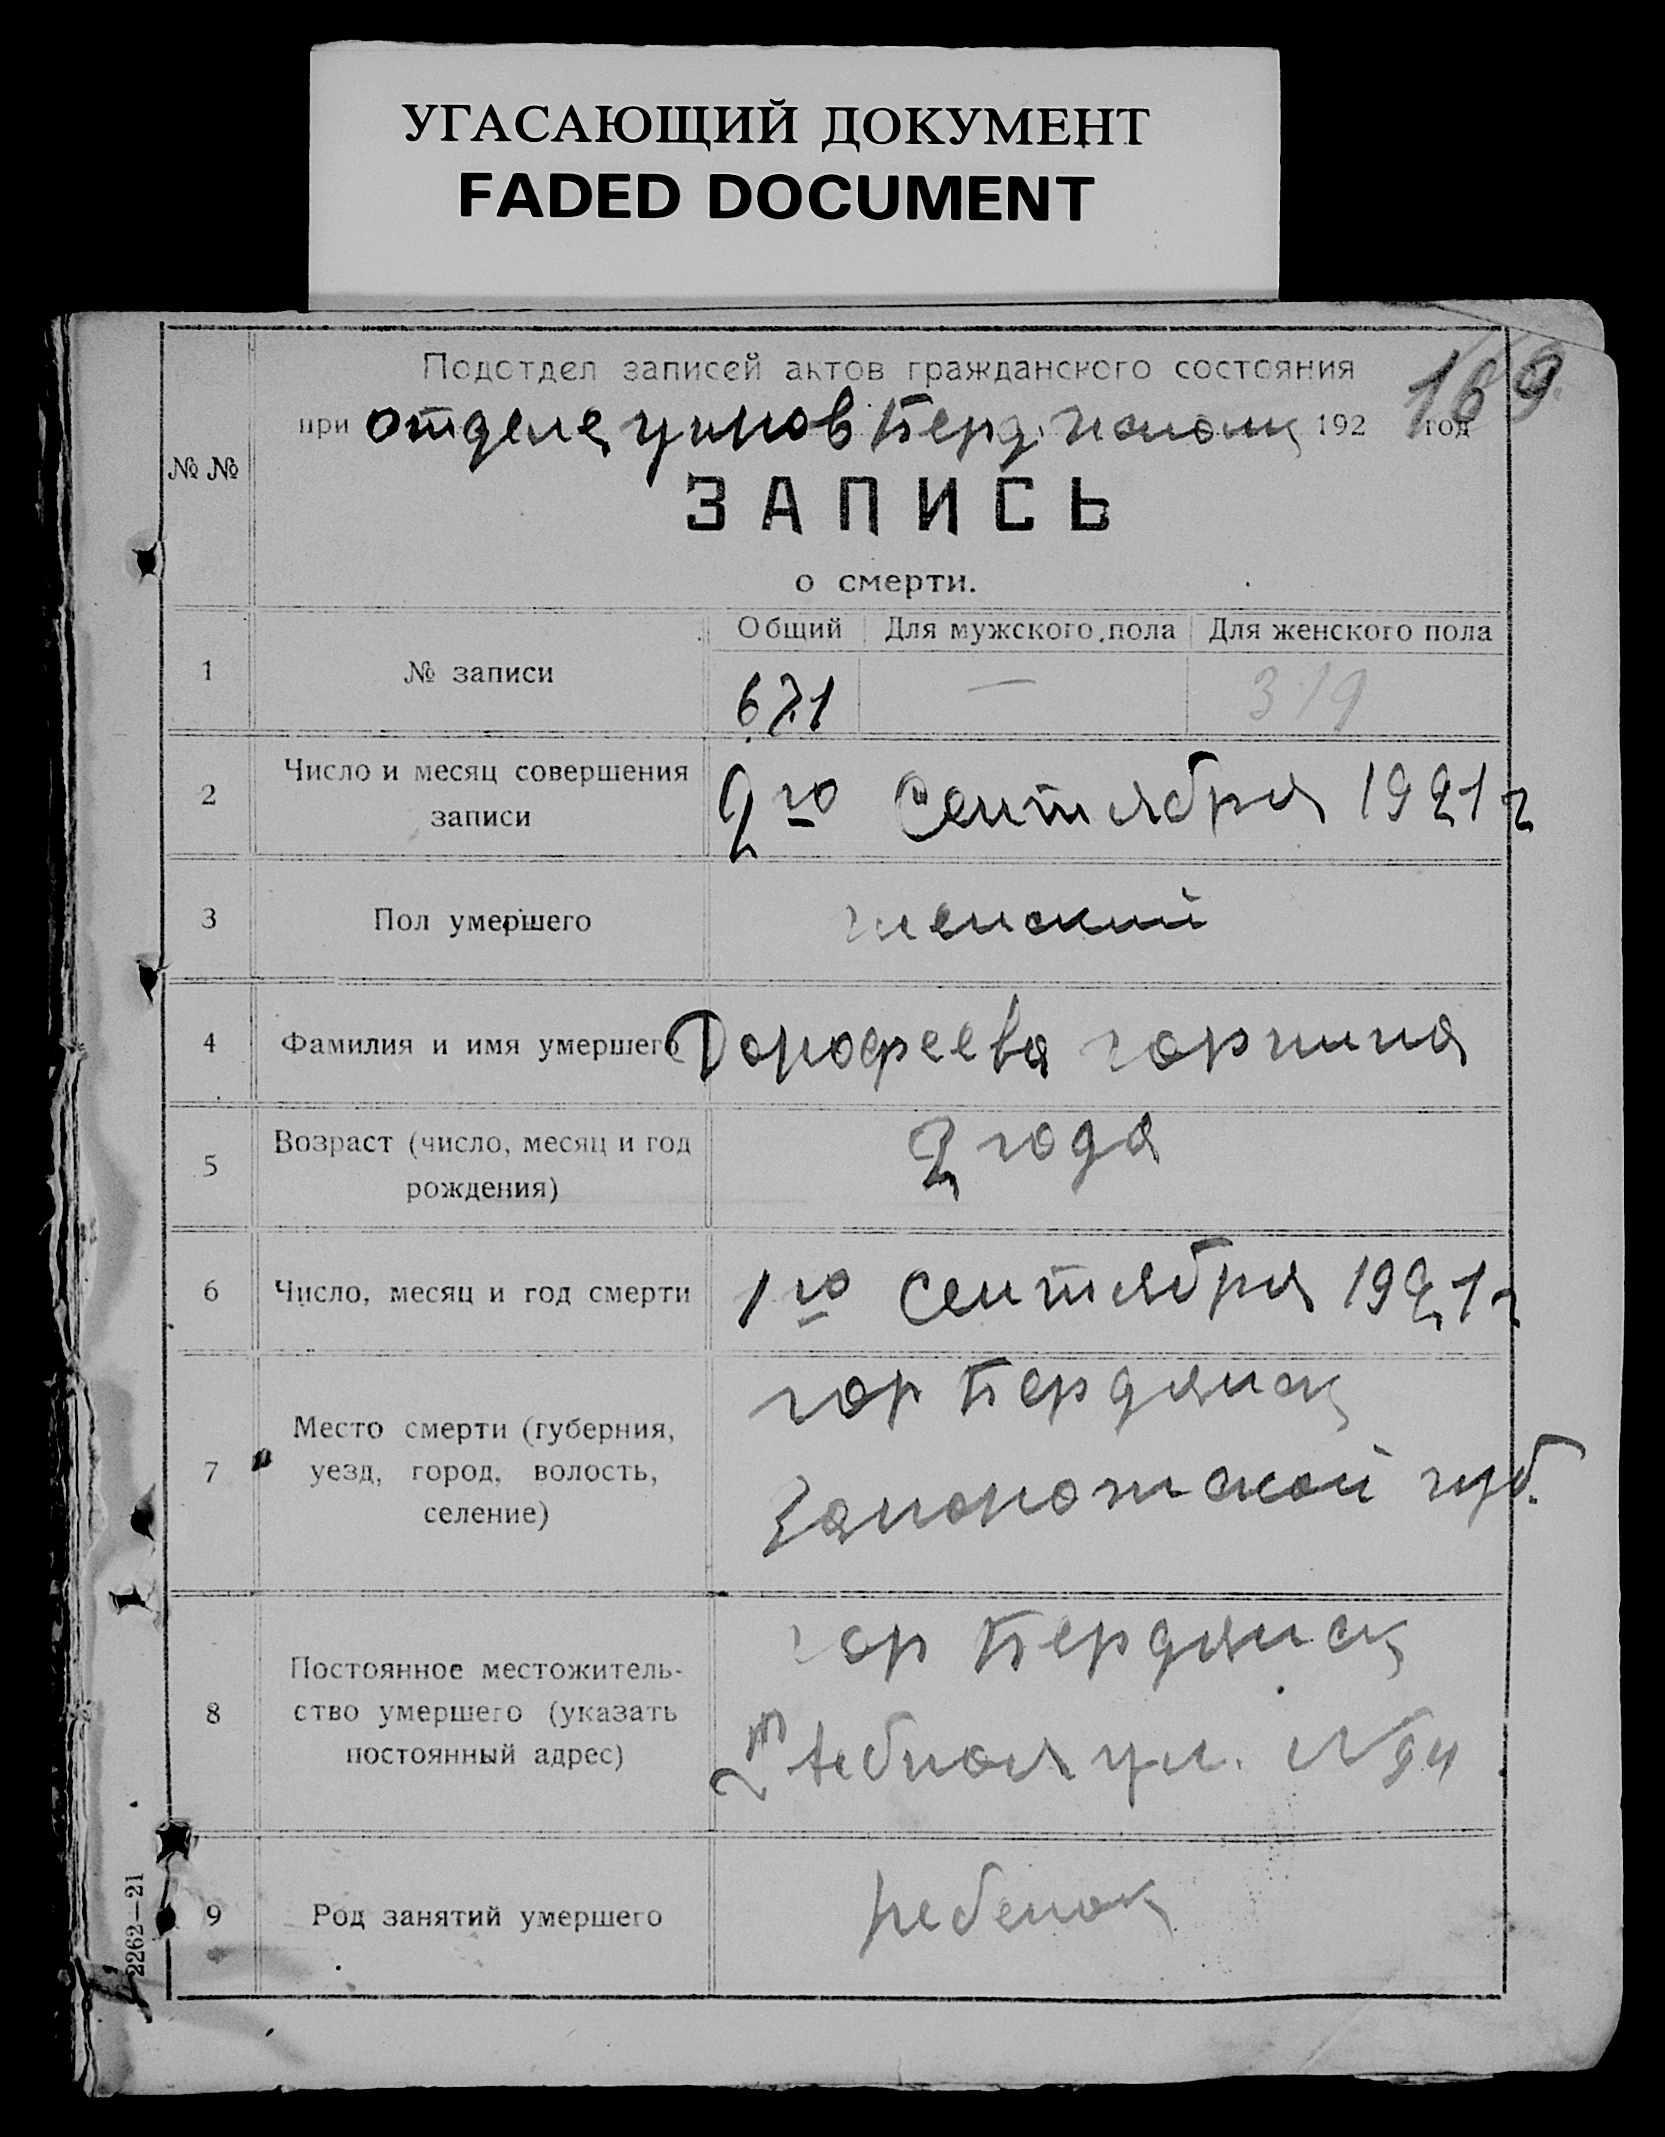 УГАСАЮЩИЙ ДОКУМЕНТ
FADED DOCUMENT
169
Подотдел записей актов гражданского состояния
при отделе 192 год
№ №
ЗАПИСЬ
о смерти.
Общий Для мужского пола Для женского пола
1 № записи 671 — 319
2 Число и месяц совершения
записи
2го Сентября 1921 г
3 Пол умершего женский
4 Фамилия и имя умершего Дорофеева
5 Возраст (число, месяц и год
рождения)
2 года
6 Число, месяц и год смерти 1го Сентября 1921 г
7 Место смерти (губерния,
уезд, город, волость,
селение)
гор Бердянск
Запорожской губ.
8 Постоянное местожитель-
ство умершего (указать
постоянный адрес)
гор Бердянск
ул. №
9 Род занятий умершего ребенок
2262—21